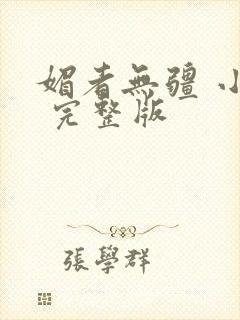 媚者無疆 小
完整版
張學群